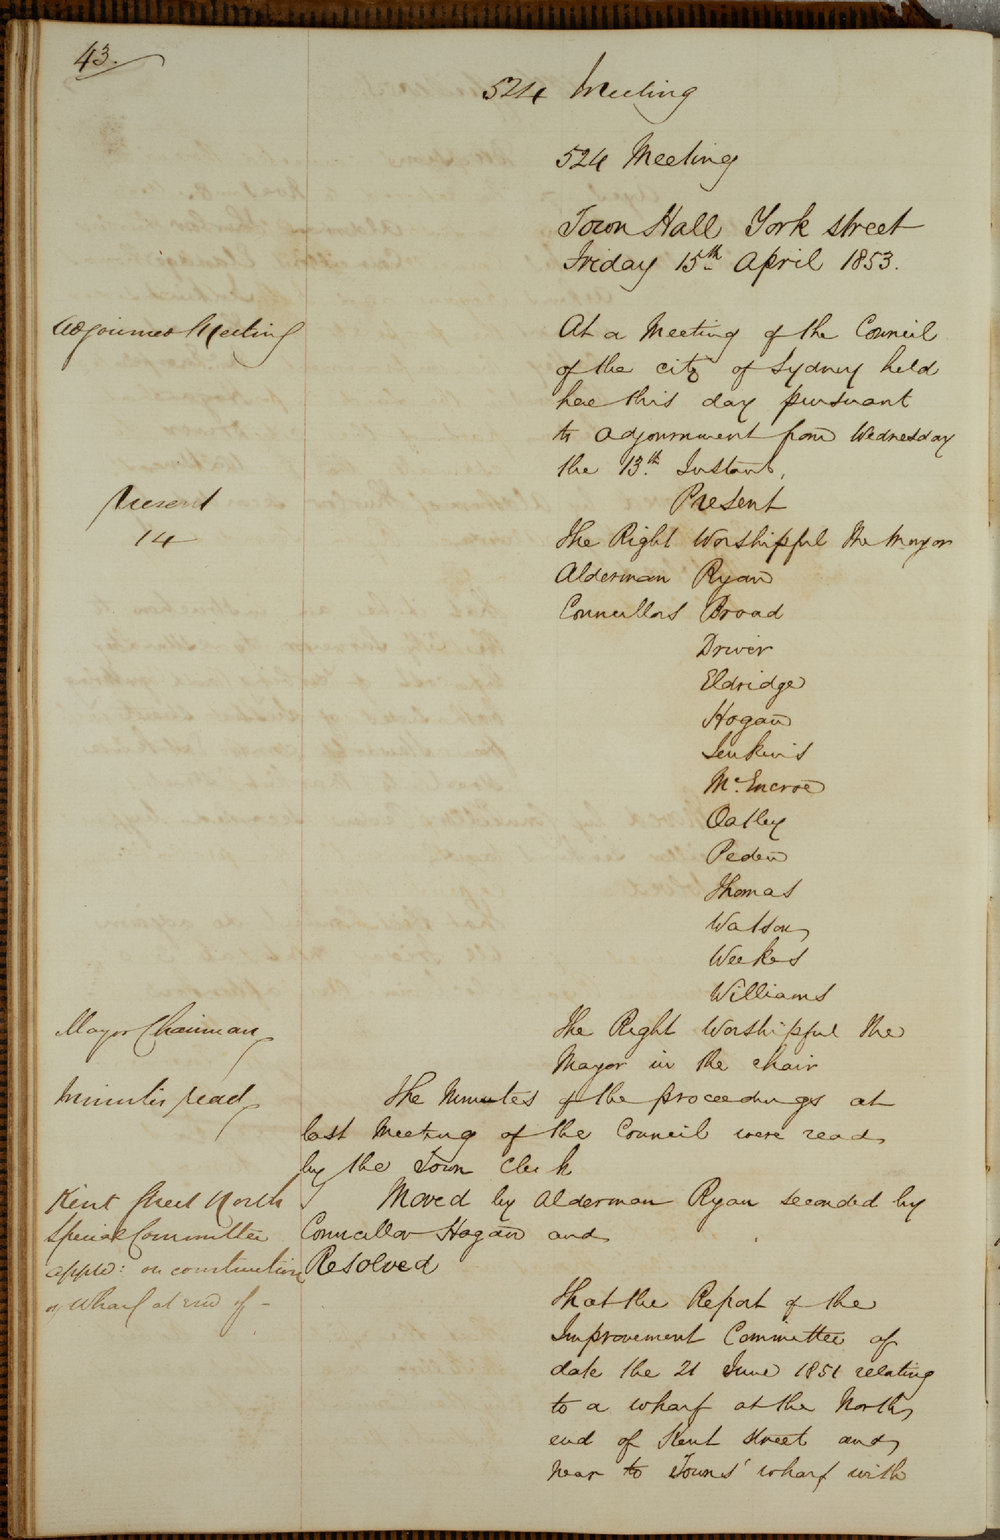 43.
524 Meeting
524 Meeting
Town Hall York street
Friday 15th April 1853.
Adjourned Meeting
At a Meeting of the Council
of the city of Sydney held
here this day pursuant
to adjournment from Wednesday
the 13th Instant,
Present
14
Present
The Right Worshipful the Mayor
Alderman Ryan
Councillors Broad
Driver
Eldridge
Hogan
Jenkins
McEncroe
Oatley
Peden
Thomas
Watson
Weekes
Williams
Mayor Chairman
The Right Worshipful the
Mayor in the chair
Minutes read
The Minutes of the proceedings at
last Meeting of the Council were read
by the Town Clerk
Kent Street North
Special Committee
appd: on construction
of Wharf at end of -
Moved by Alderman Ryan seconded by
Councillor Hogan and
Resolved
That the Report of the
Improvement Committee of
date the 21 June 1851 relating
to a wharf at the North
end of Kent street and
near to Towns' wharf with